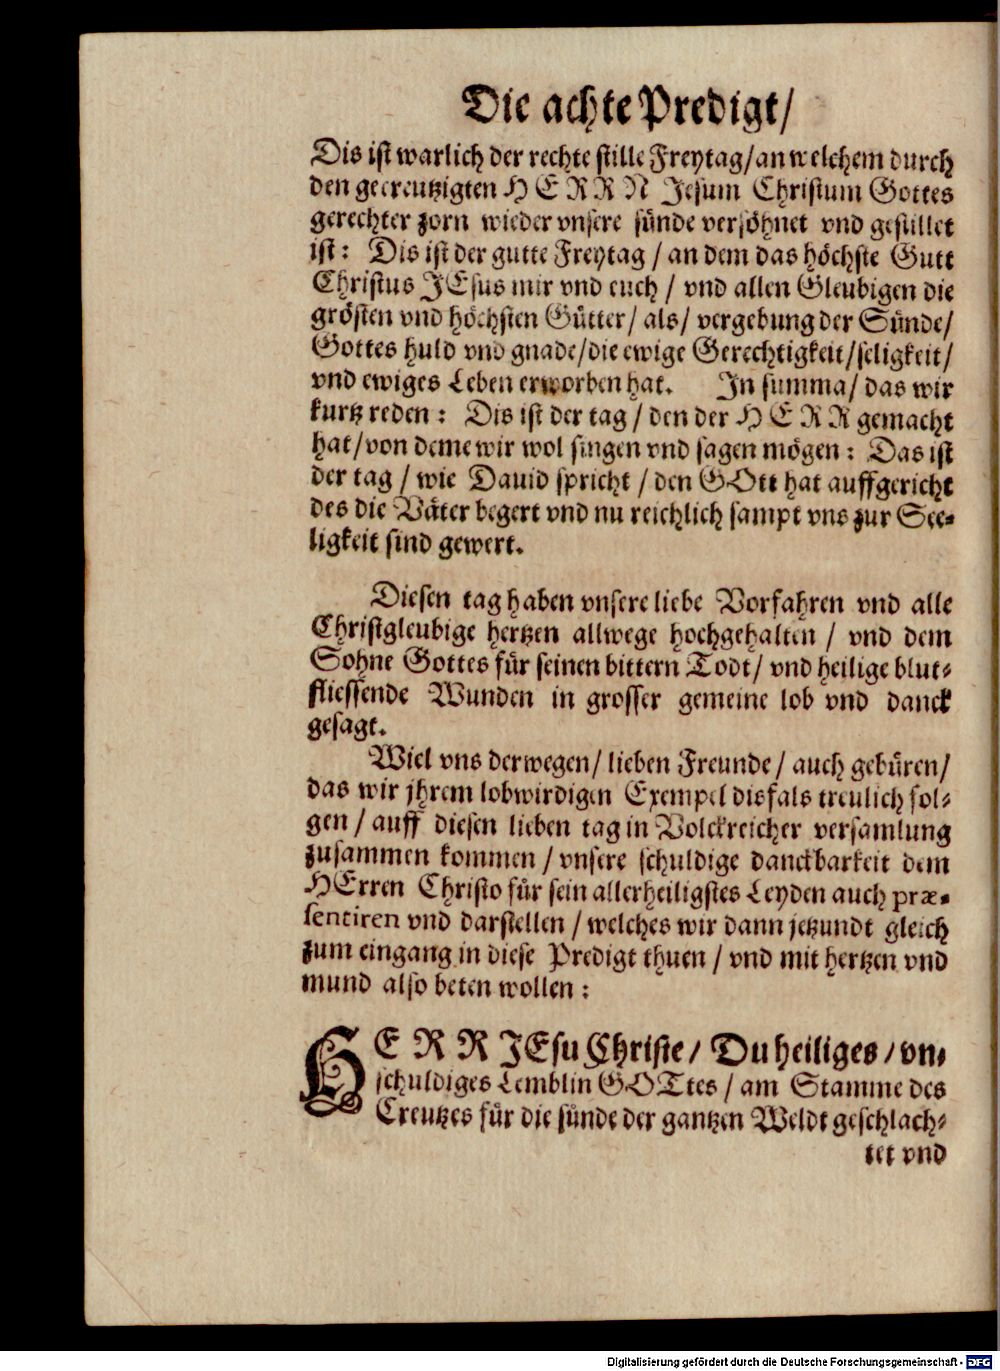 Die achte Predigt/
Dis ist warlich der rechte stille Freytag/an welchem durch
den gecreutzigten HERRN Jesum Christum Gottes
gerechter zorn wieder vnsere sünde versöhnet vnd gestillet
ist: Dis ist der gutte Freytag / an dem das höchste Gutt
Christus JEsus mir vnd euch / vnd allen Gleubigen die
grösten vnd höchsten Gütter/ als/ vergebung der Sünde/
Gottes huld vnd gnade/die ewige Gerechtigkeit/seligkeit/
vnd ewiges Leben erworben hat. In summa/ das wir
kurtz reden: Dis ist der tag / den der HERR gemacht
hat/von deme wir wol singen vnd sagen mögen: Das ist
der tag / wie Dauid spricht / den GOtt hat auffgericht
des die Väter begert vnd nu reichlich sampt vns zur See-
ligkeit sind gewert.
Diesen tag haben vnsere liebe Vorfahren vnd alle
Christgleubige hertzen allwege hochgehalten / vnd dem
Sohne Gottes für seinen bittern Todt/ vnd heilige blut-
fliessende Wunden in grosser gemeine lob vnd danck
gesagt.
Wiel vns derwegen/ lieben Freunde / auch gebüren/
das wir jhrem lobwirdigen Exempel disfals treulich fol-
gen / auff diesen lieben tag in Volckreicher versamlung
zusammen kommen / vnsere schuldige danckbarkeit dem
HErren Christo für sein allerheiligstes Leyden auch præ-
sentiren vnd darstellen / welches wir dann jetzundt gleich
zum eingang in diese Predigt thuen / vnd mit hertzen vnd
mund also beten wollen:
HERR JEsu Christe/ Du heiliges / vn-
schuldiges Lemblin GOTtes / am Stamme des
Creutzes für die sünde der gantzen Weldt geschlach-
tet vnd
Digitalisierung gefördert durch die Deutsche Forschungsgemeinschaft - DFG